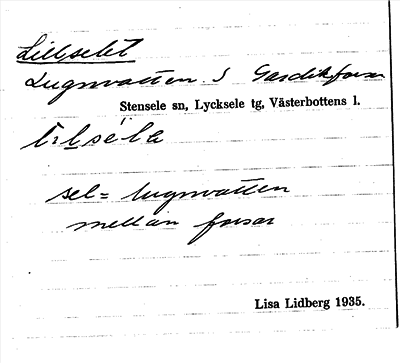 Lillselet
Lugnvatten. S Gardikforsen
Stensele sn, Lycksele tg, Västerbottens l.
sel = lugnvatten
mellan forsar
Lisa Lidberg 1935.